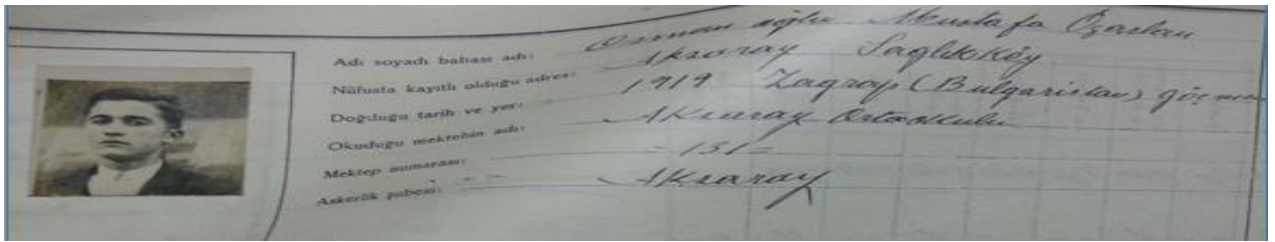 Adı soyadı babası adı: Osman oğlu Mustafa Özaslan
Nüfusta kayıtlı olduğu adres: Aksaray Sağlıkköy
Doğduğu tarih ve yer: 1919 Zagrap (Bulgaristan) göçme
Okuduğu mektebin adı: Aksaray Ortaokulu
Mektep numarası: =131=
Askerlik şubesi: Aksaray